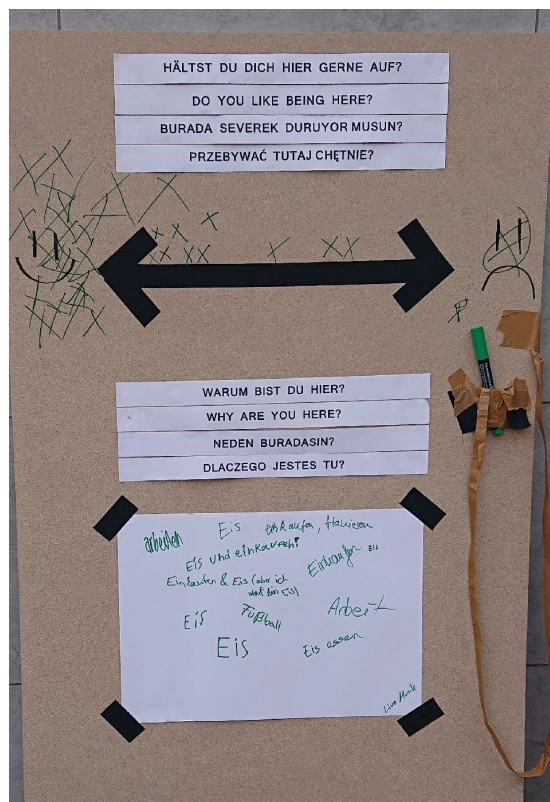 HÄLTST DU DICH HIER GERNE AUF?
DO YOU LIKE BEING HERE?
BURADA SEVEREK DURUYOR MUSUN?
PRZEBYWAĆ TUTAJ CHĘTNIE?
WARUM BIST DU HIER?
WHY ARE YOU HERE?
NEDEN BURADASIN?
DLACZEGO JESTES TU?
arbeiten
Eis
Einkaufen, flanieren
Eis und einkaufen!
Einkaufen Eis
Einkaufen & Eis (aber ich
Eis)
Eis
Fußball
Arbeit
Eis
Eis essen
Live Musik